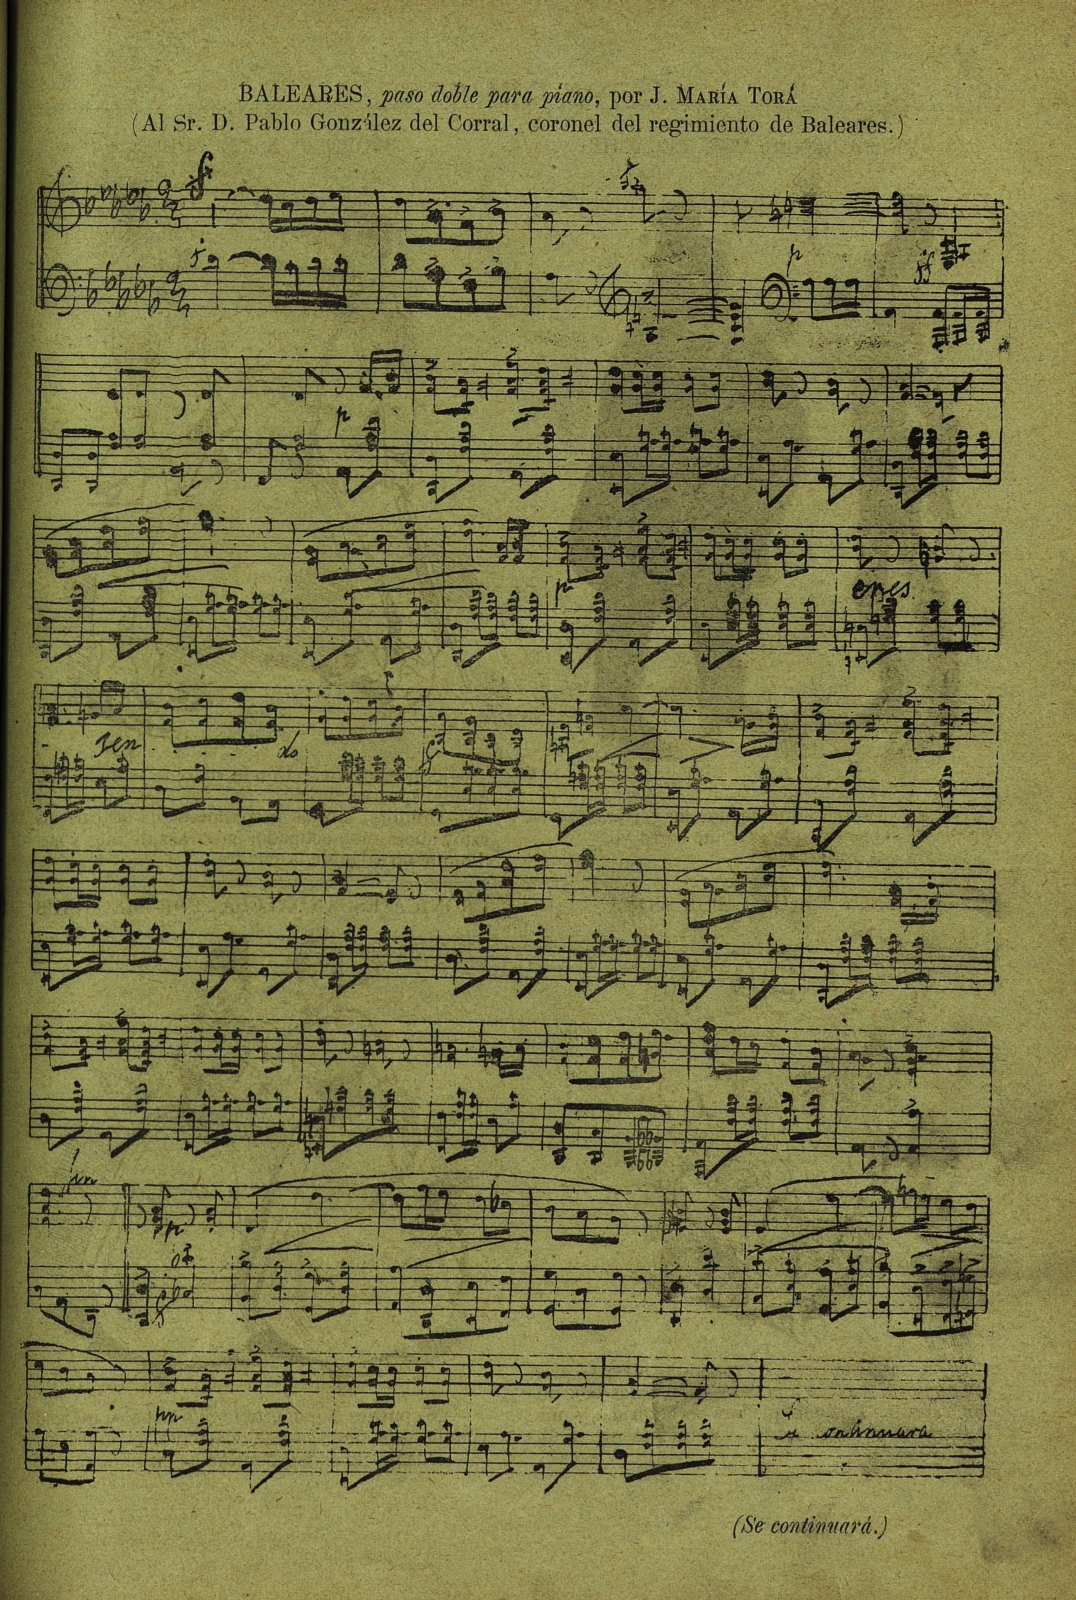 BALEARES, paso doble para piano, por J. MARÍA TORÁ
(Al Sr. D. Pablo González del Corral, coronel del regimiento de Baleares.)
p
ff
p
p
cres
cen
do
pp
(Se continuará.)